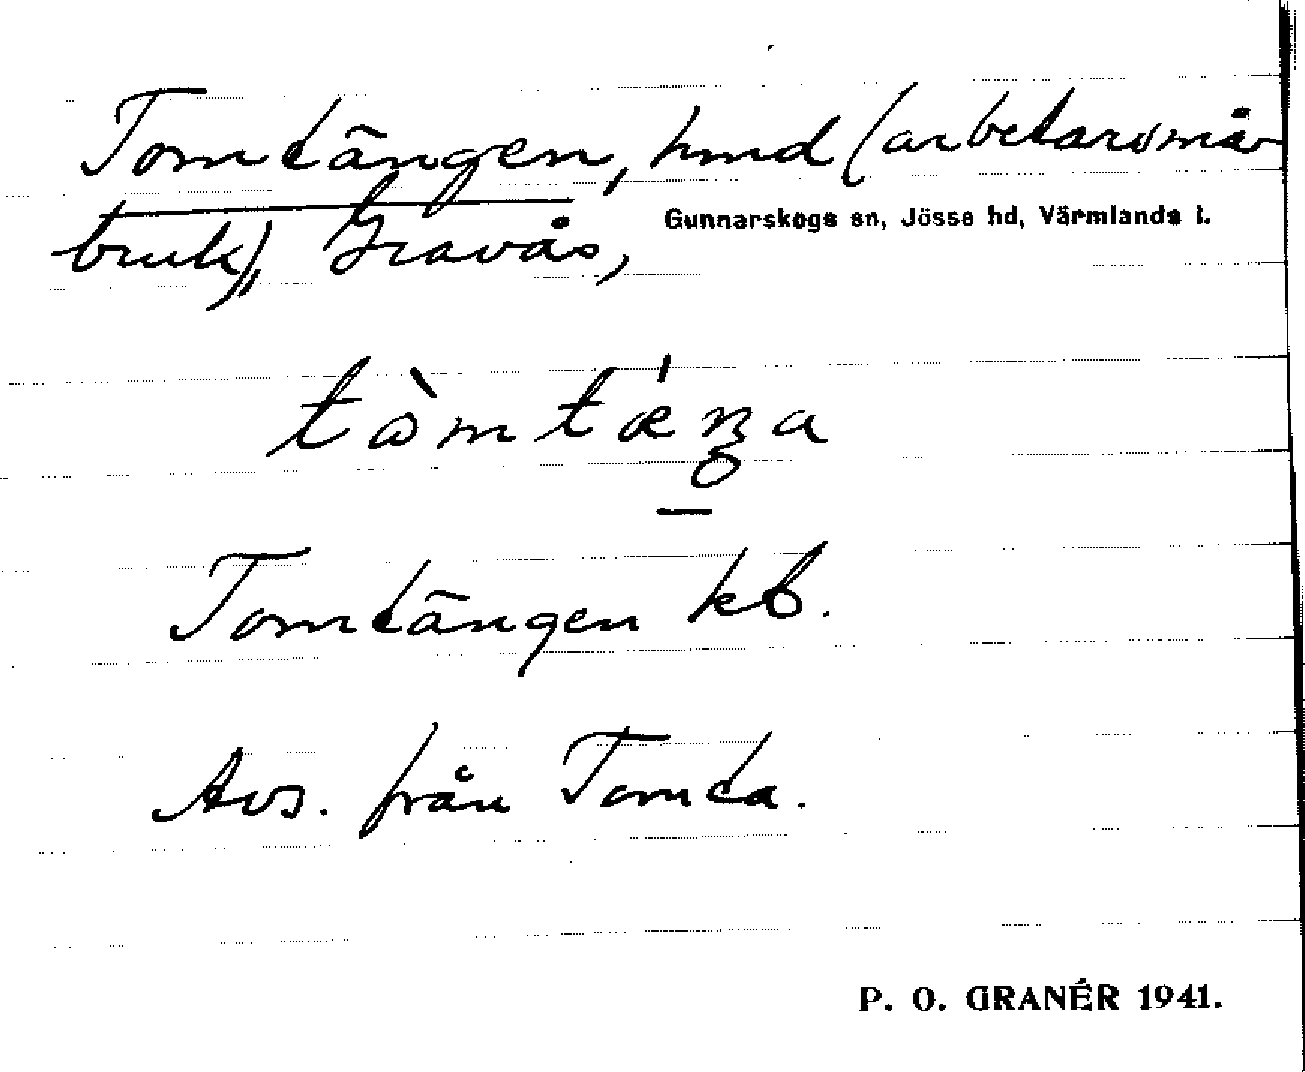 Tomtängen, hmd (arbetaresmå-
bruk), Gravås, Gunnarskogs sn, Jösse hd, Värmlands l.
Tomtängen kb.
Avs. från Tomta.
P. O. GRANÉR 1941.